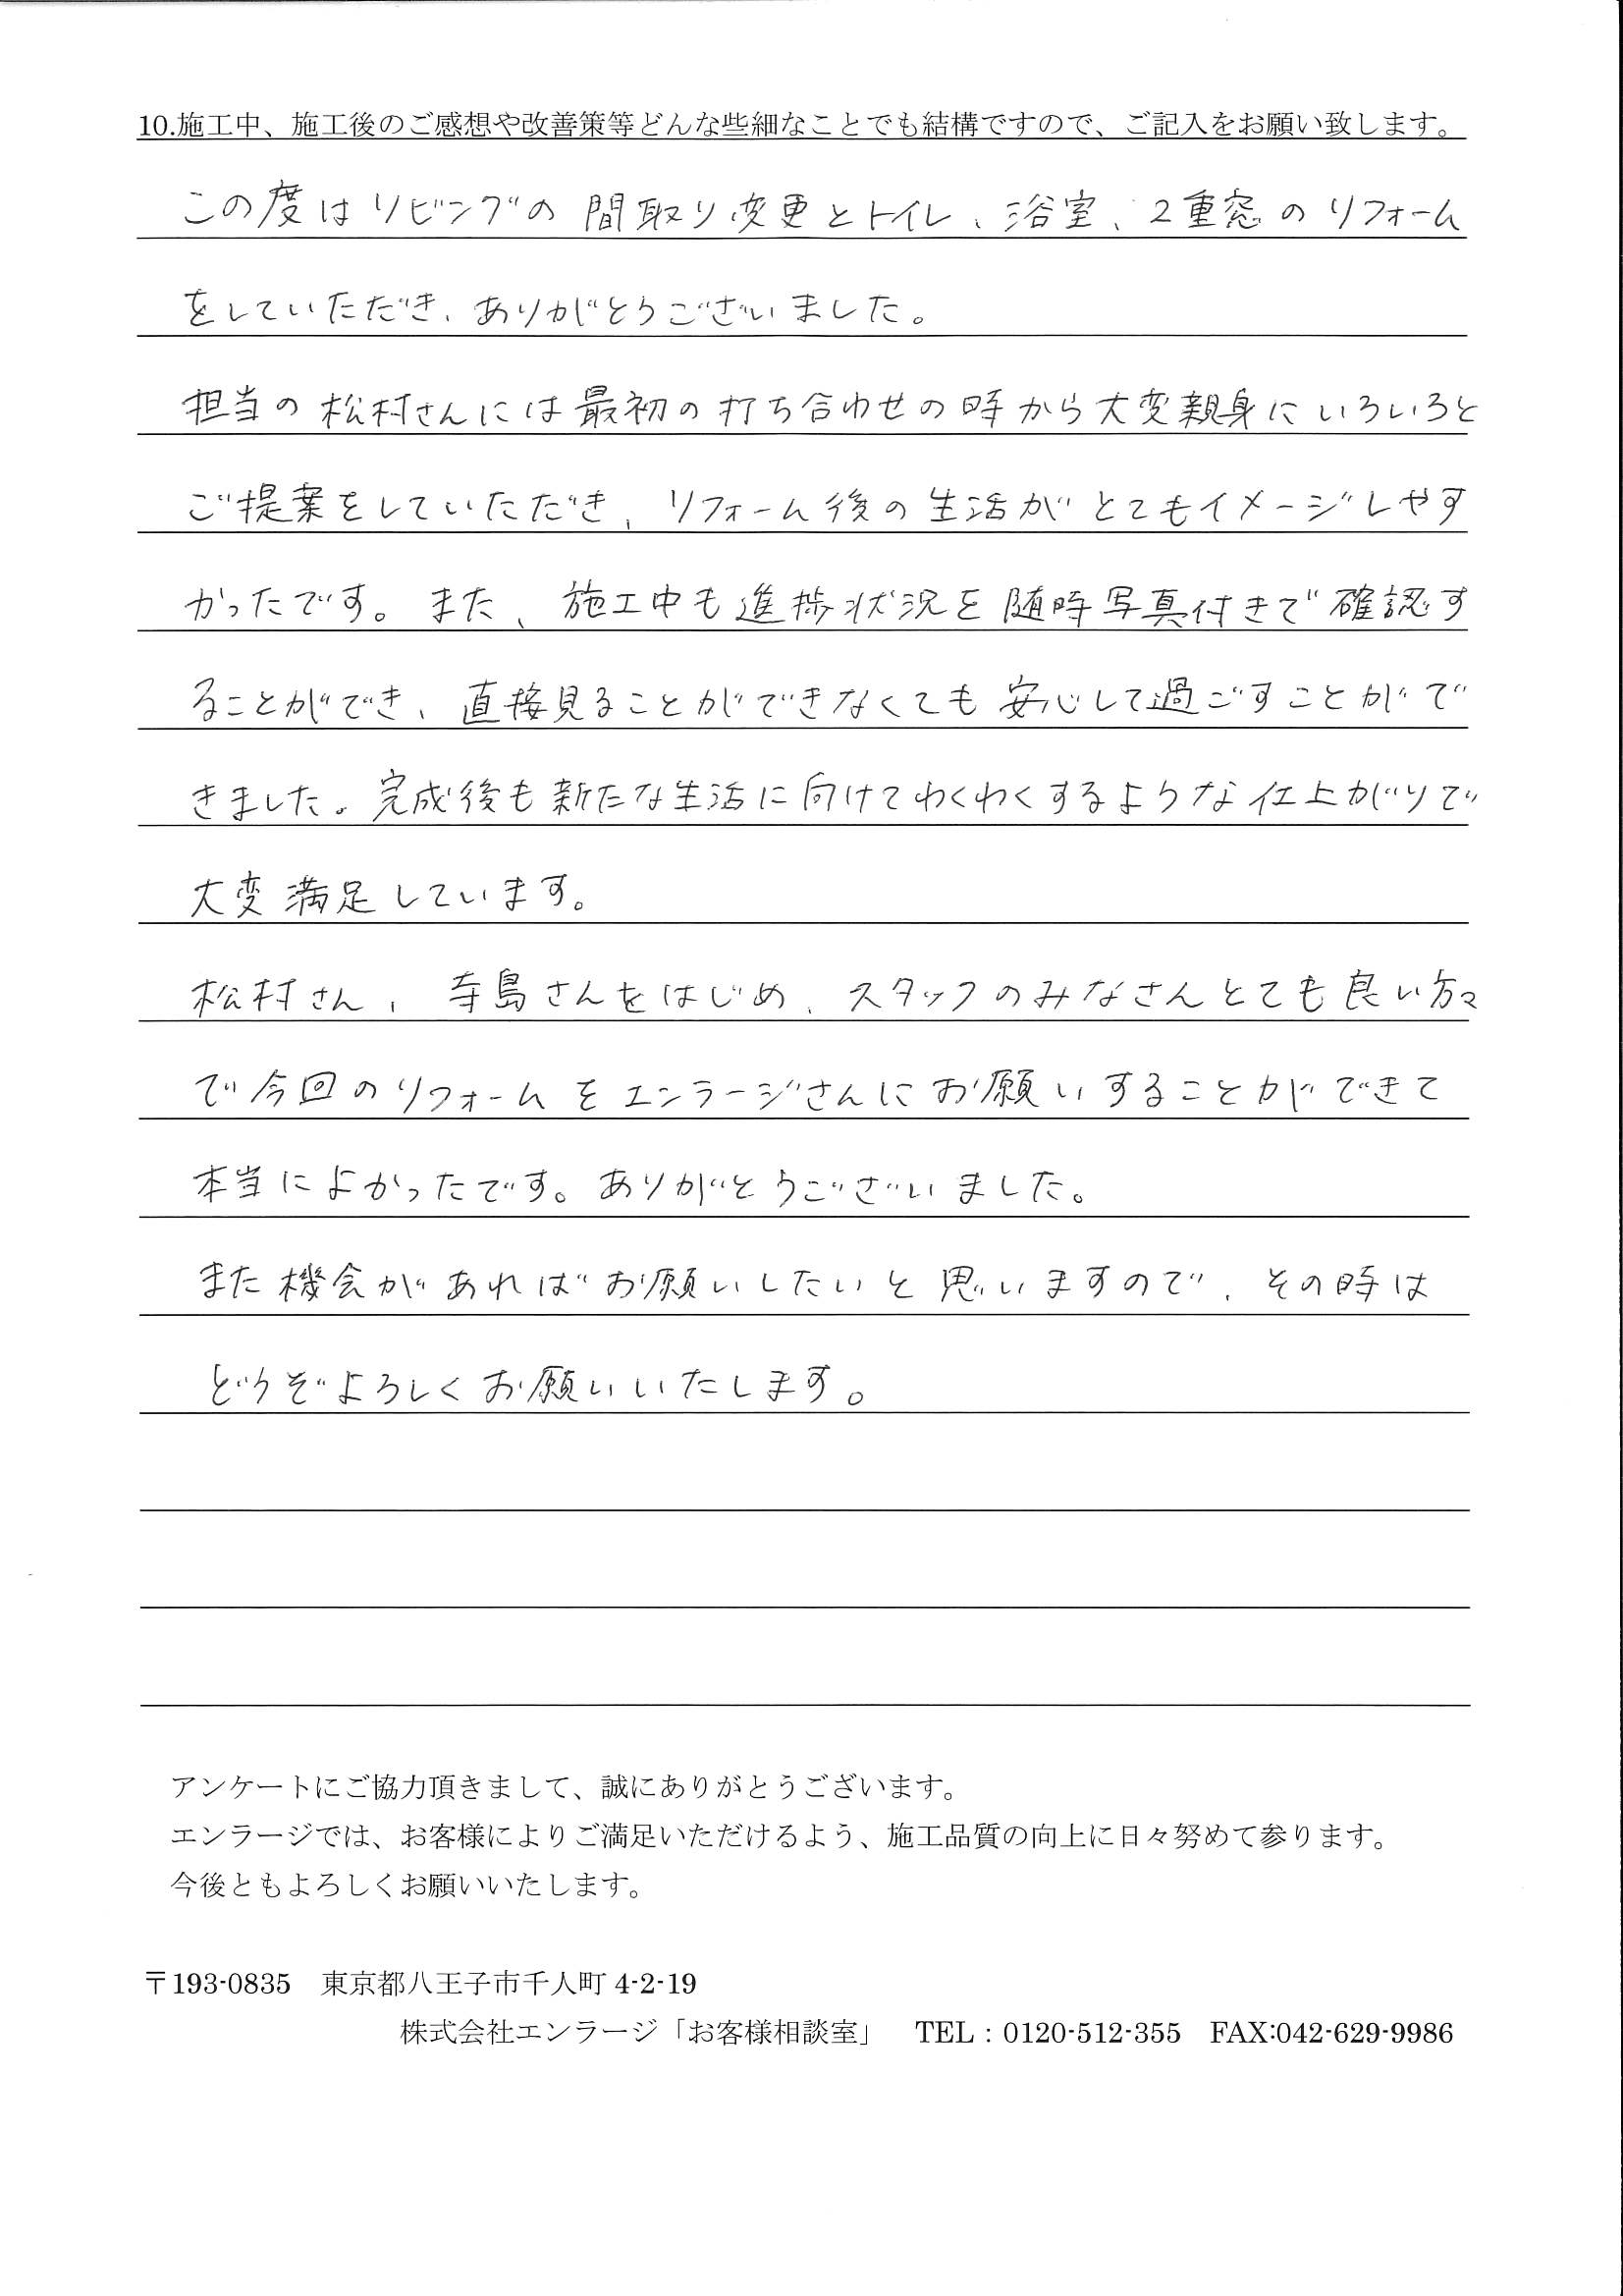 10.施工中、施工後のご感想や改善策等どんな些細なことでも結構ですので、ご記入をお願い致します。
この度はリビングの間取り変更とトイレ、浴室、2重窓のリフォーム
をしていただき、ありがとうございました。
担当の松村さんには最初の打ち合わせの時から大変親身にいろいろと
ご提案をしていただき、リフォーム後の生活がとてもイメージしやす
かったです。また、施工中も進捗状況を随時写真付きで確認す
ることができ、直接見ることができなくても安心して過ごすことがで
きました。完成後も新たな生活に向けてわくわくするような仕上がりで
大変満足しています。
松村さん、寺島さんをはじめ、スタッフのみなさんとても良い方々
で今回のリフォームをエンラージさんにお願いすることができて
本当によかったです。ありがとうございました。
また機会があればお願いしたいと思いますので、その時は
どうぞよろしくお願いいたします。
アンケートにご協力頂きまして、誠にありがとうございます。
エンラージでは、お客様によりご満足いただけるよう、施工品質の向上に日々努めて参ります。
今後ともよろしくお願いいたします。
〒193-0835 東京都八王子市千人町 4-2-19
株式会社エンラージ「お客様相談室」 TEL:0120-512-355 FAX:042-629-9986